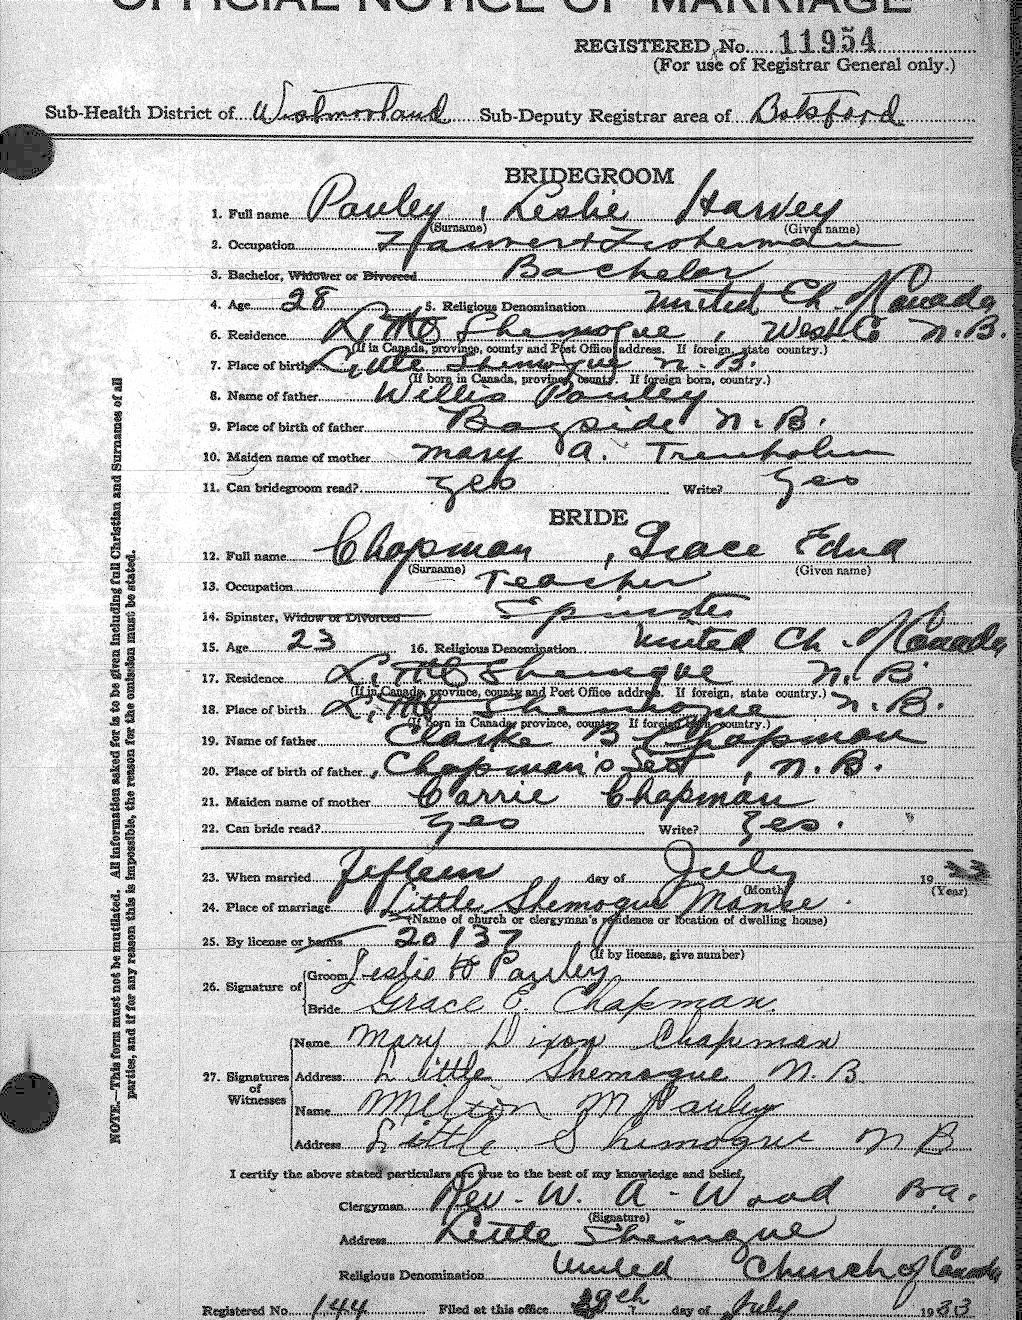 OFFICIAL NOTICE OF MARRIAGE
REGISTERED No. 11954
(For use of Registrar General only.)
Sub-Health District of Westmorland Sub-Deputy Registrar area of Botsford
BRIDEGROOM
1. Full name Pauley, Leslie Harvey
(Surname) (Given name)
2. Occupation Farmer & Fisherman
3. Bachelor, Widower or Divorced Bachelor
4. Age 28 5. Religious Denomination United Ch. of Canada
6. Residence Little Shemogue, West. Co N.B.
(If in Canada, province, county and Post Office address. If foreign, state country.)
7. Place of birth Little Shemogue N.B.
(If born in Canada, province, county. If foreign born, country.)
8. Name of father Willis Pauley
9. Place of birth of father Bayside N.B.
10. Maiden name of mother Mary A. Trenholm
11. Can bridegroom read? Yes Write? Yes
BRIDE
12. Full name Chapman, Grace Edna
(Surname) (Given name)
13. Occupation Teacher
14. Spinster, Widow or Divorced Spinster
15. Age 23 16. Religious Denomination United Ch. of Canada
17. Residence Little Shemogue N.B
(If in Canada, province, county and Post Office address. If foreign, state country.)
18. Place of birth Little Shemogue N.B.
(If born in Canada, province, county. If foreign born, country.)
19. Name of father Clarke B Chapman
20. Place of birth of father Chapman's Set, N.B.
21. Maiden name of mother Carrie Chapman
22. Can bride read? Yes Write? Yes.
23. When married Fifteen day of July 1933
(Month) (Year)
24. Place of marriage Little Shemogue Manse
(Name of church or clergyman's residence or location of dwelling house)
25. By license or banns 20137
(If by license, give number)
26. Signature of Groom Leslie H Pauley
Bride Grace E. Chapman.
27. Signatures of Witnesses
Name Mary Dixon Chapman
Address Little Shemogue N.B.
Name Melton M Pauley
Address Little Shemogue N B
I certify the above stated particulars are true to the best of my knowledge and belief,
Clergyman Rev. W. A. Wood B.A.
(Signature)
Address Little Shemogue
Religious Denomination United Church of Canada
Registered No. 144 Filed at this office 29th day of July 1933
NOTE.—This form must not be mutilated. All information asked for is to be given including full Christian and Surnames of all
parties, and if for any reason this is impossible, the reason for the omission must be stated.